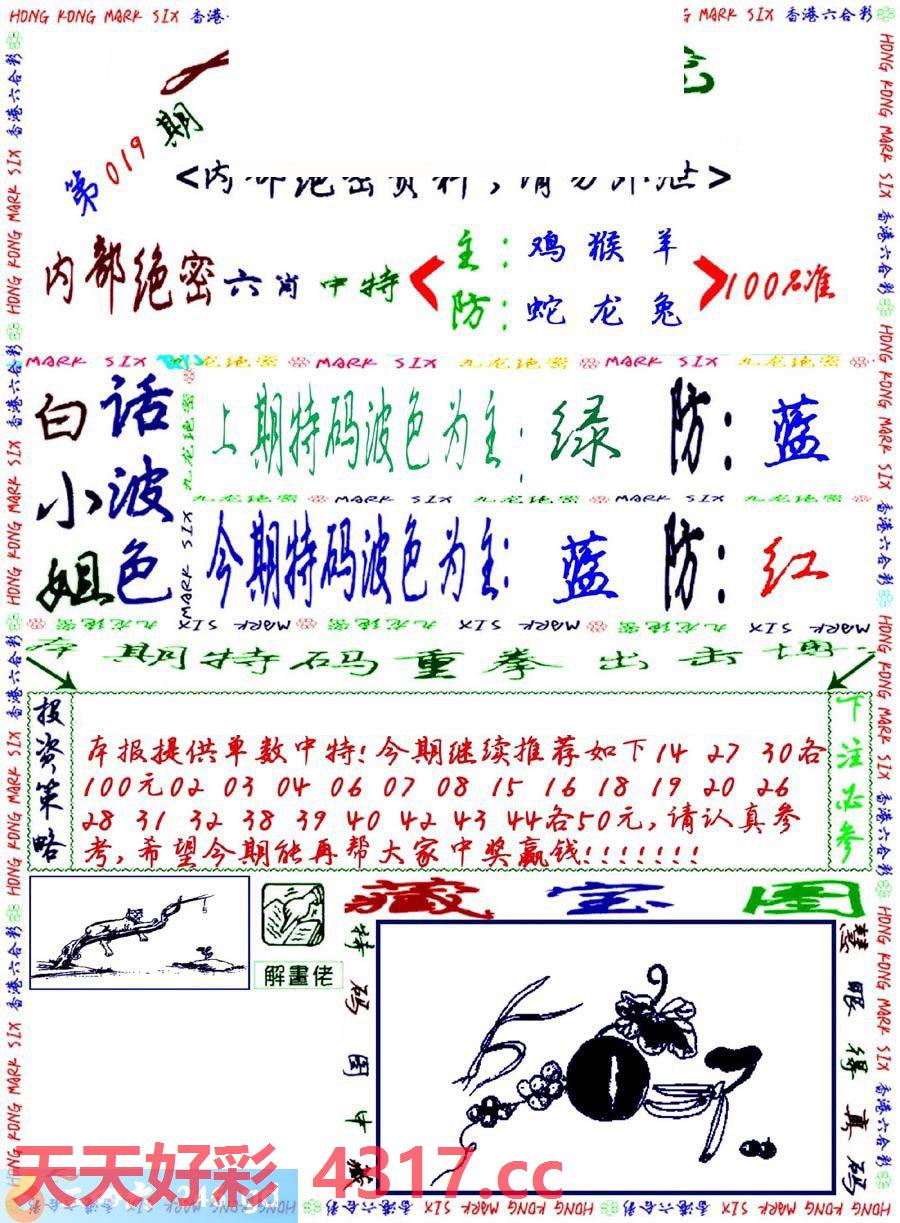 HONG KONG MARK SIX 香港
MARK SIX 香港六合彩
第019期
<内部绝密资料，请勿外泄>
内部绝密六肖中特
主：鸡猴羊
防：蛇龙兔
100%准
MARK SIX 九龙绝密 MARK SIX 九龙绝密 MARK SIX 九龙绝密
白话
小波
姐色
上期特码波色为主：绿 防：蓝
九龙绝密 MARK SIX 九龙绝密 MARK SIX 九龙绝密
今期特码波色为主：蓝 防：红
本期特码重拳出击
投资策略
本报提供单数中特！今期继续推荐如下14 27 30各
100元02 03 04 06 07 08 15 16 18 19 20 26
28 31 32 38 39 40 42 43 44各50元，请认真参
考，希望今期能再帮大家中奖赢钱!!!!!!!
下注必参
解畫佬
藏宝图
特码图中藏
慧眼得真码
天天好彩 4317.cc